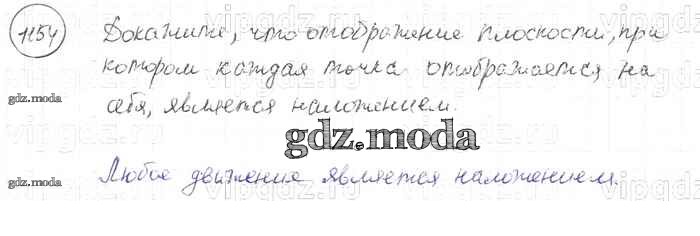 1154 Докажите, что отображение плоскости, при
котором каждая точка отображается на
gdz.moda
себя, является наложением.
gdz.moda
gdz.moda
Любое движение является наложением.